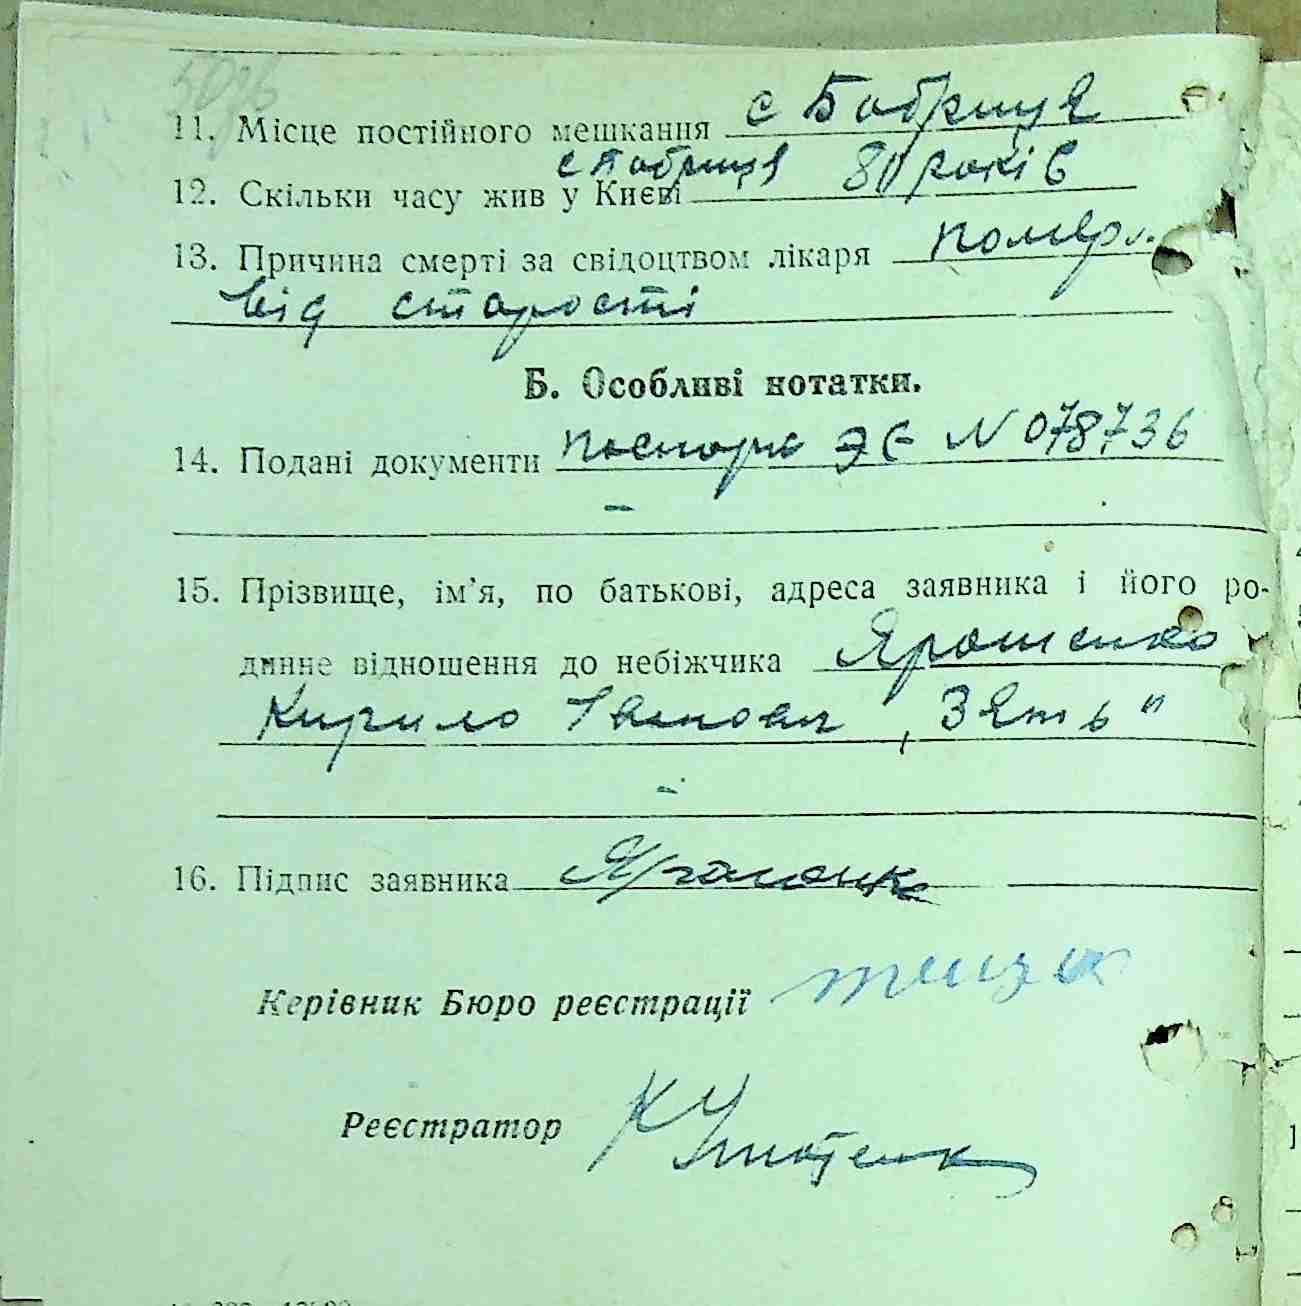 11. Місце постійного мешкання с Бобриця
с Бобриця 80 років
12. Скільки часу жив у Києві
13. Причина смерті за свідоцтвом лікаря помер
від старості
Б. Особливі нотатки.
14. Подані документи паспорт ЭЄ N 078736
15. Прізвище, ім’я, по батькові, адреса заявника і його ро-
динне відношення до небіжчика Ярошенко
Кирило Іванович, Зять"
16. Підпис заявника
Керівник Бюро реєстрації
Реєстратор